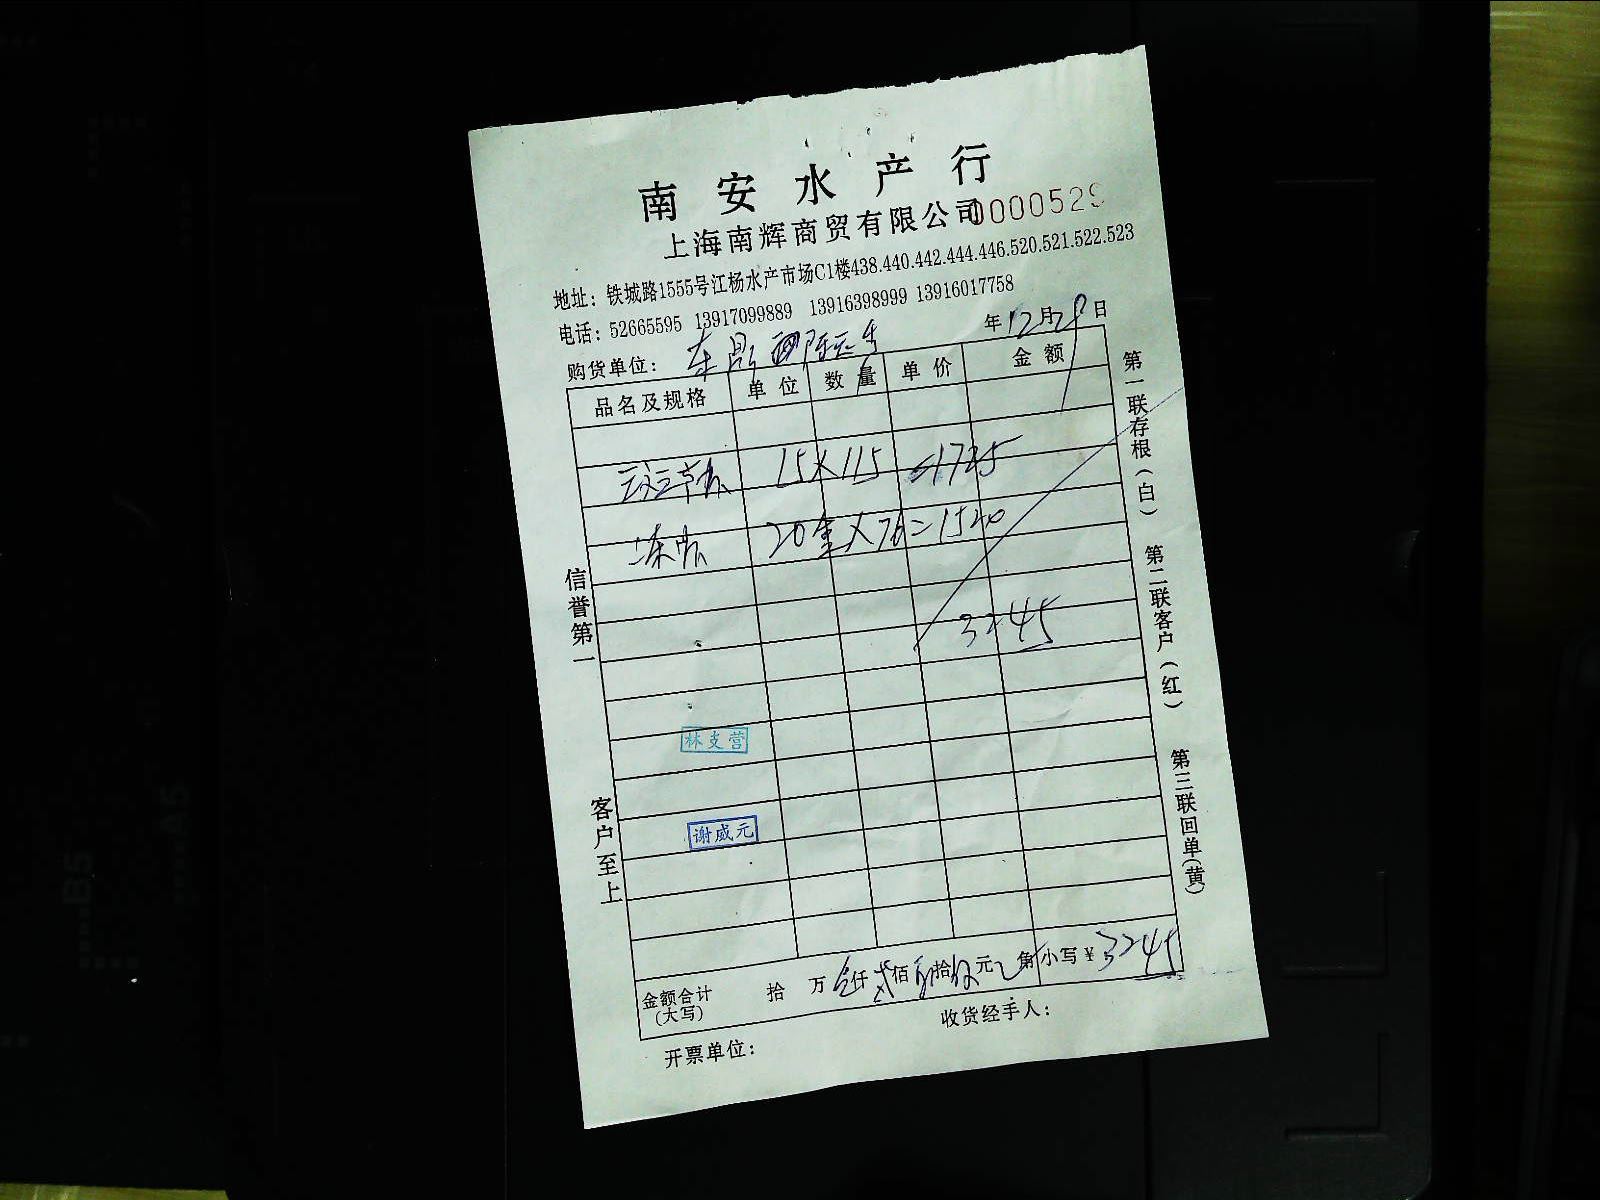 南安水产行
上海南辉商贸有限公司 0000529
地址：铁城路1555号江杨水产市场C1楼438.440.442.444.446.520.521.522.523
电话：52665595 13917099889 13916398999 13916017758
购货单位： 年12月2 日
品名及规格 单位 数量 单价 金额
15×115=1725
20 ×76=1520
3245
林支营
谢威元
金额合计(大写) 拾 万 叁仟 贰佰 肆拾 伍元 角 小写￥3245
开票单位： 收货经手人：
信誉第一
客户至上
第一联存根(白)
第二联客户(红)
第三联回单(黄)